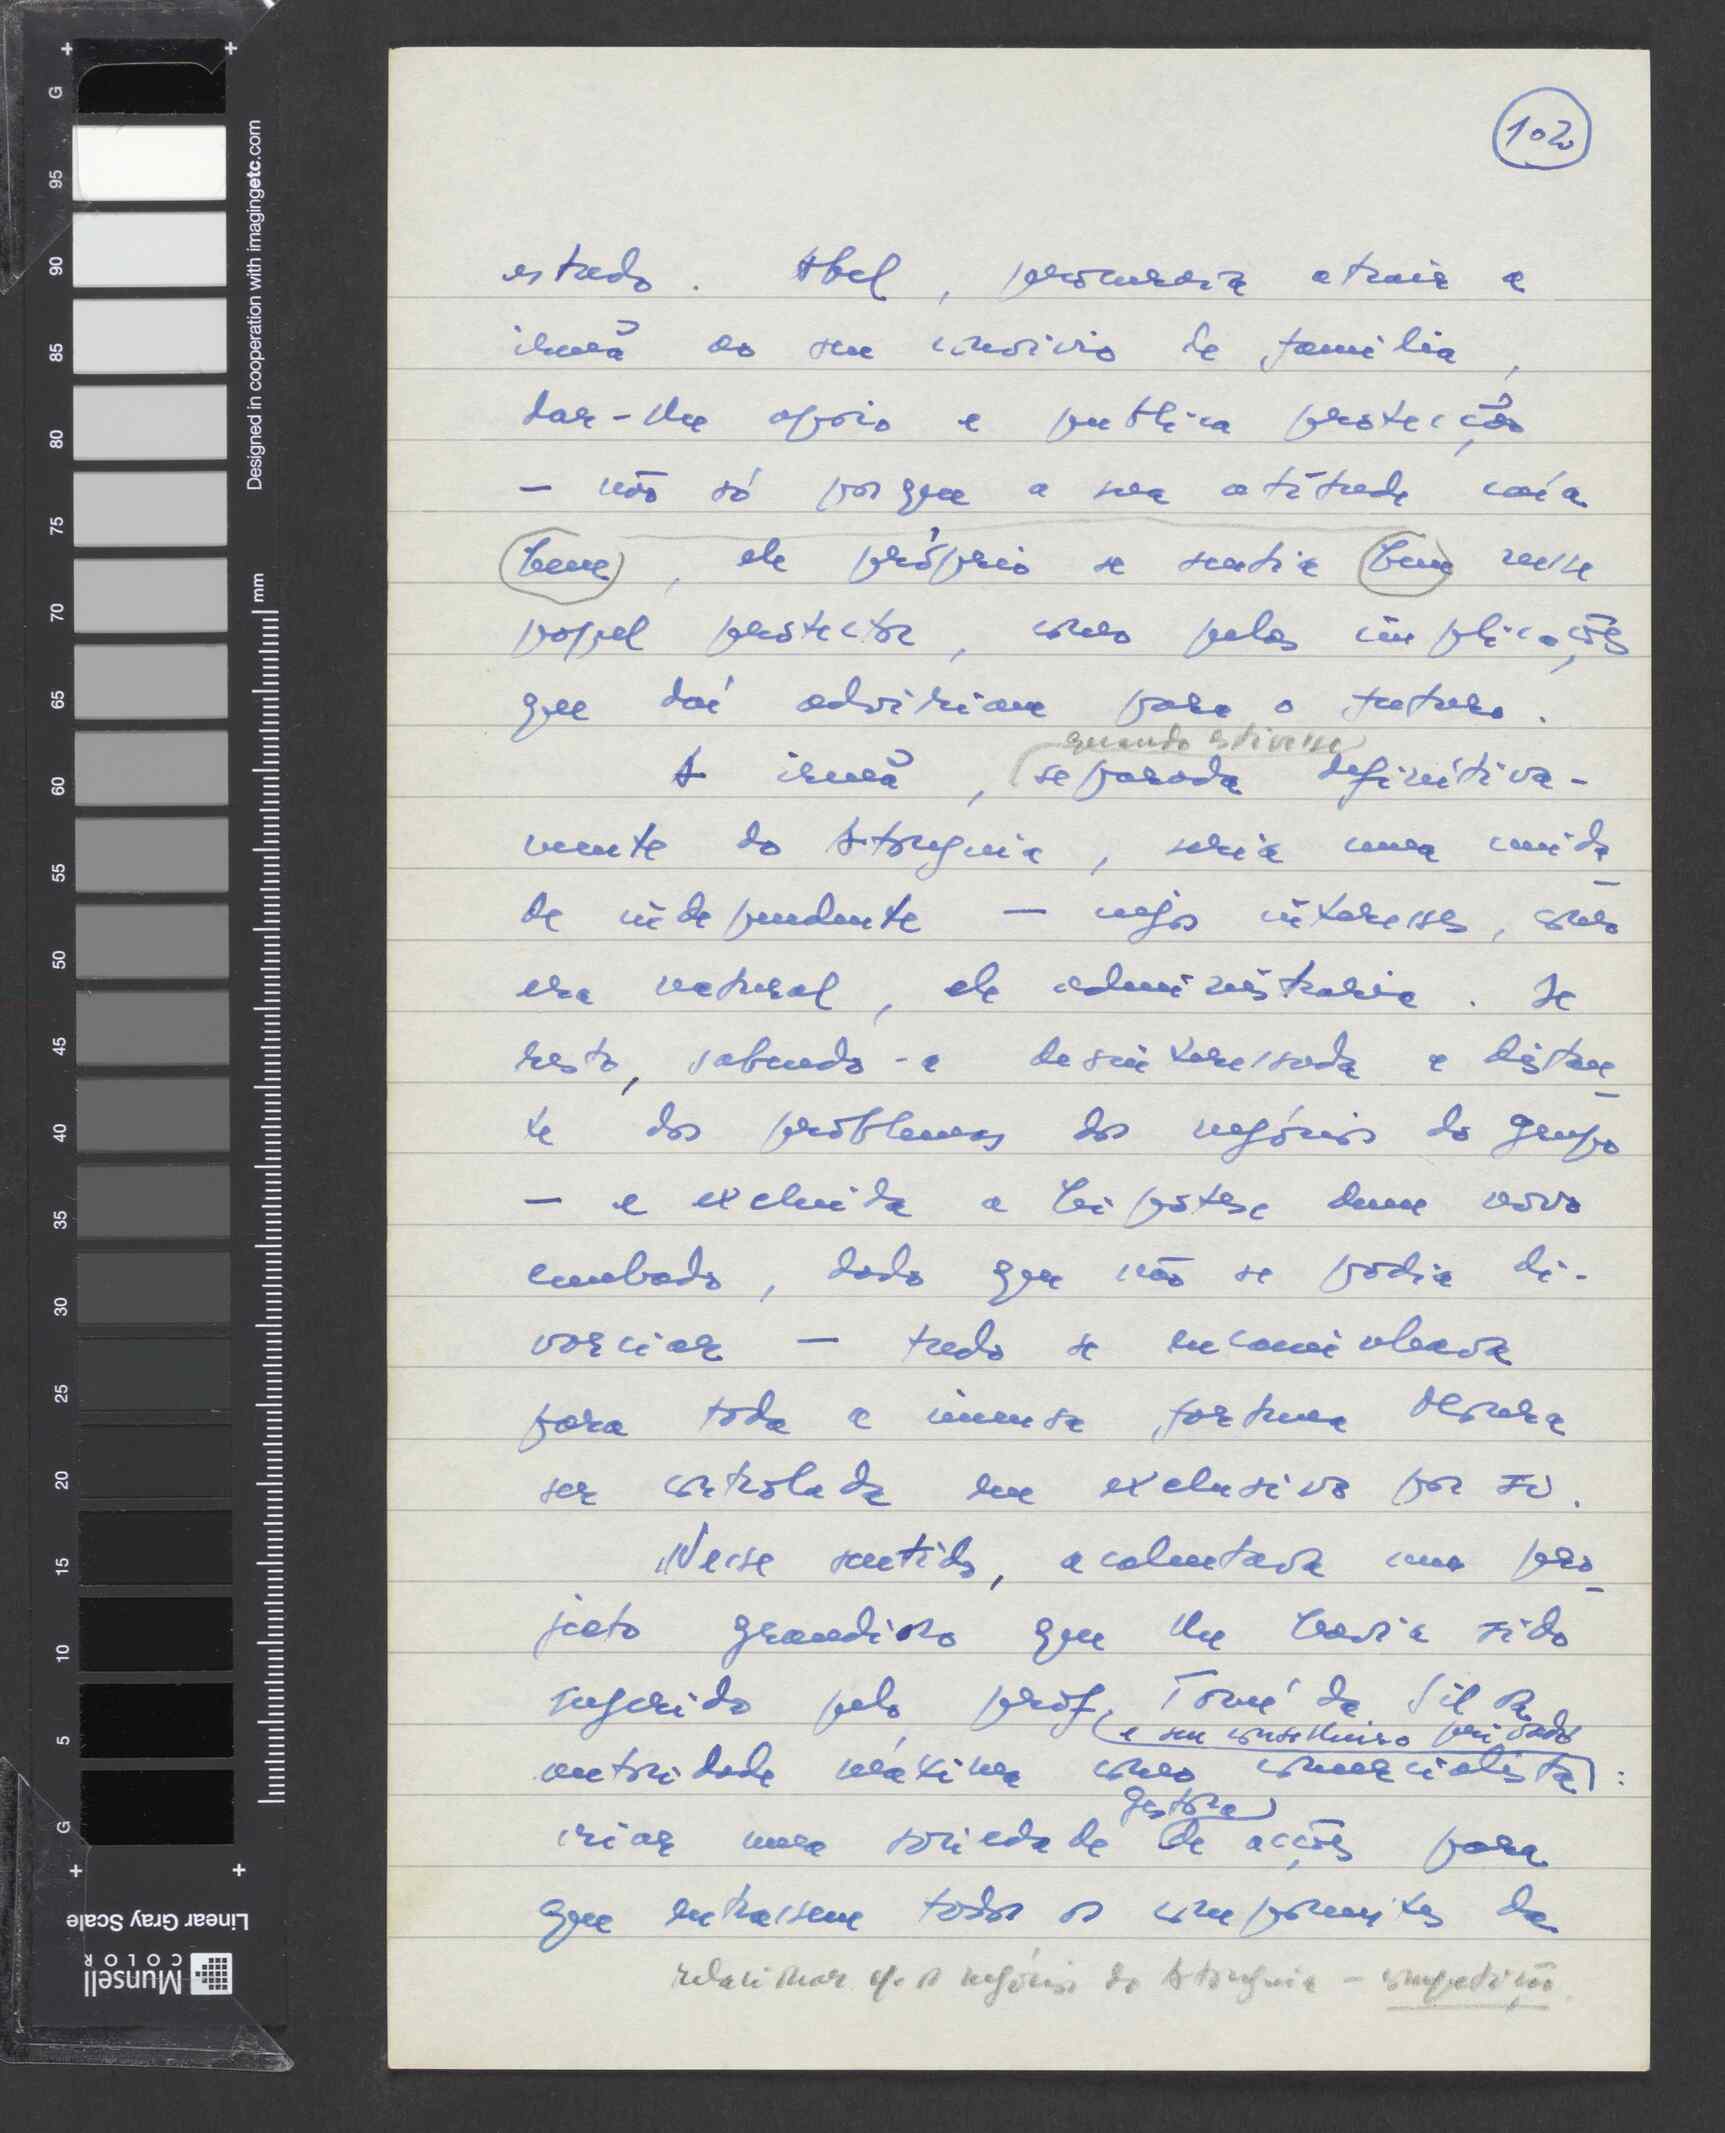 102
estado. Abel, procuraria atrair a
irmã ao seu convívio de família,
dar-lhe apoio e publica protecção
— não só porque a sua atitude caía
bem, ele próprio se sentia bem nesse
papel protector, como pelas implicações
que daí adviriam para o futuro.
quando estivesse
A irmã, separada definitiva-
mente do Atouguia, seria uma unida
de independente — cujos interesses, como
era natural, ele administraria. De
resto, sabendo-a desinteressada e distan
te dos problemas dos negócios do grupo
— e excluida a hipótese dum novo
cunhado, dado que não se podia di-
vorciar — tudo se encaminhava
para toda a imensa fortuna
ser controlada em exclusivo por si.
Nesse sentido, acalentava um pro
jecto grandioso que lhe havia sido
sugerido pelo prof. Tomé da Silva
e seu conselheiro privado
autoridade máxima como comercialista:
gestora
criar uma sociedade de acções para
que entrassem todos os componentes da
relacionar c/ os negócios do Atouguia — competição.
Designed in cooperation with imagingetc.com
mm
G 95 90 85 80 75 70 65 60 55 50 45 40 35 30 25 20 15 10 5 G
Linear Gray Scale
Munsell
COLOR